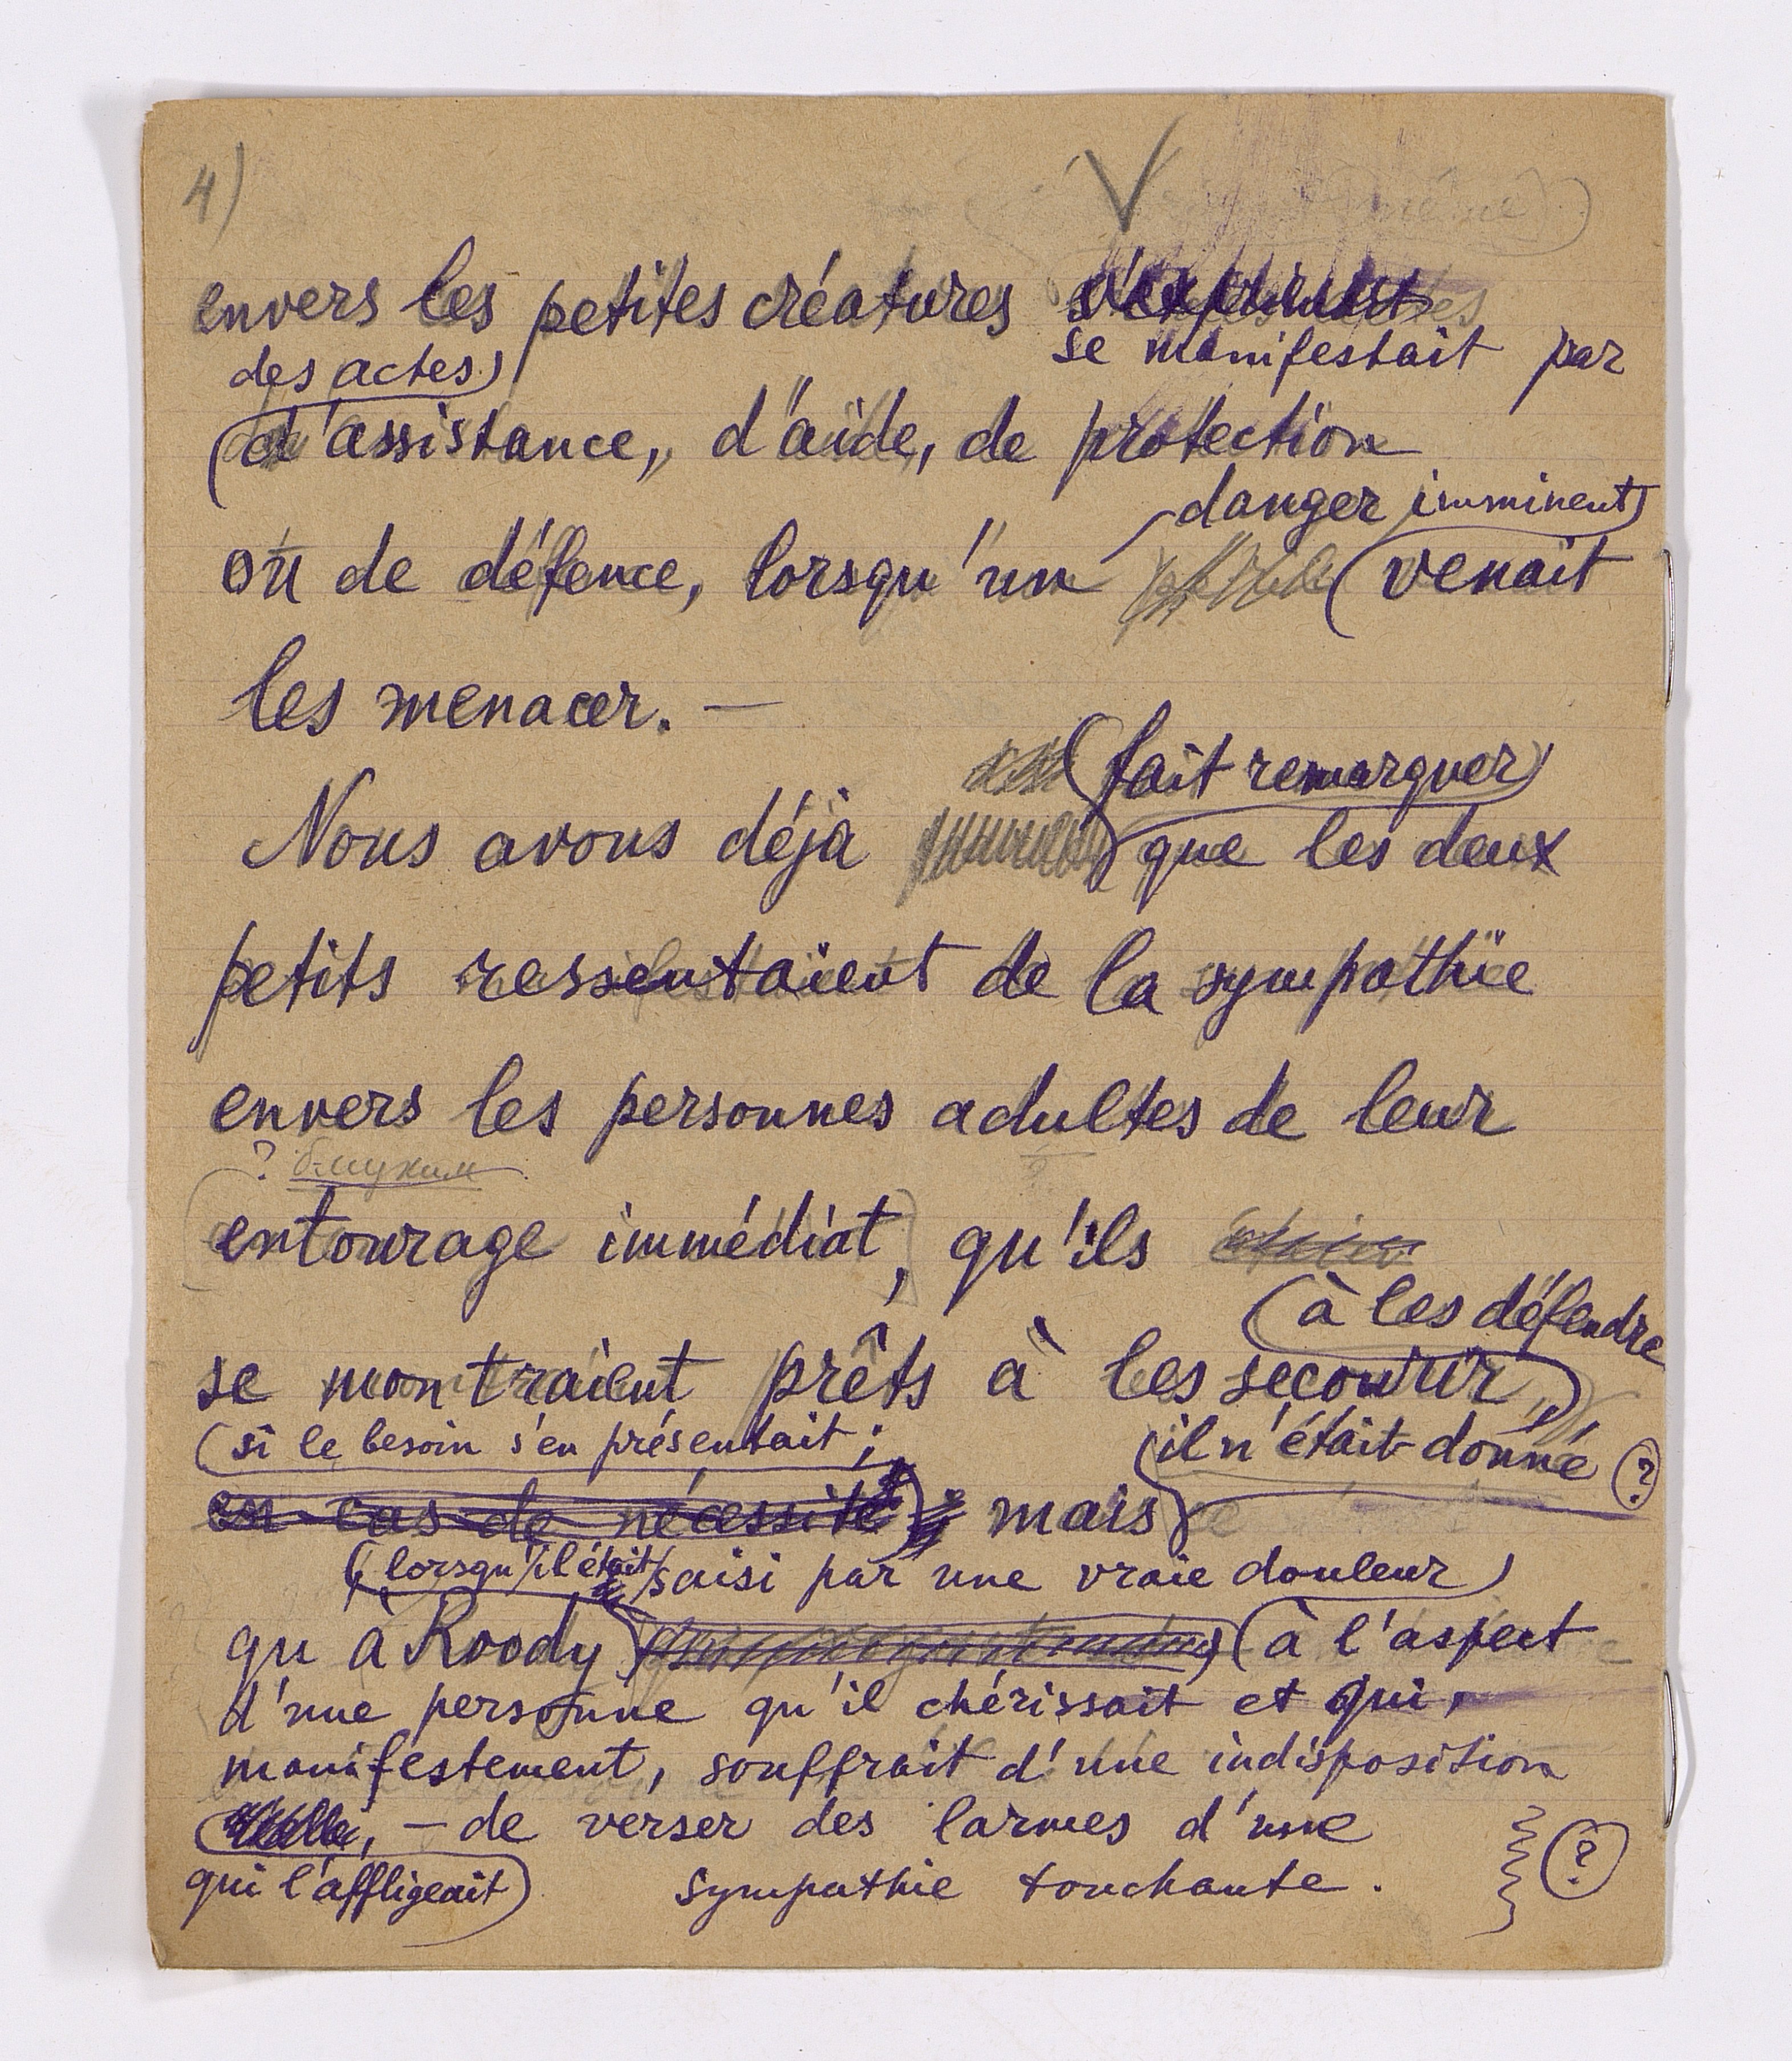 4)
envers les petites créatures s'exprimait
se manifestait par
des actes
d'assistance, d'aide, de protection
danger imminent
ou de défence, lorsqu'un venait
les menacer. —
fait remarquer
Nous avons déjà que les deux
petits ressentaient de la sympathie
envers les personnes adultes de leur
?
entourage immédiat, qu'ils
à les défendre
se montraient prêts à les secourir,
si le besoin s'en présentait; il n'était donné ?
en cas de nécessité; mais
lorsqu'il était saisi par une vraie douleur
qu'à Roody à l'aspect
d'une personne qu'il chérissait et qui,
manifestement, souffrait d'une indisposition
, — de verser des larmes d'une
qui l'affligeait sympathie touchante. ?